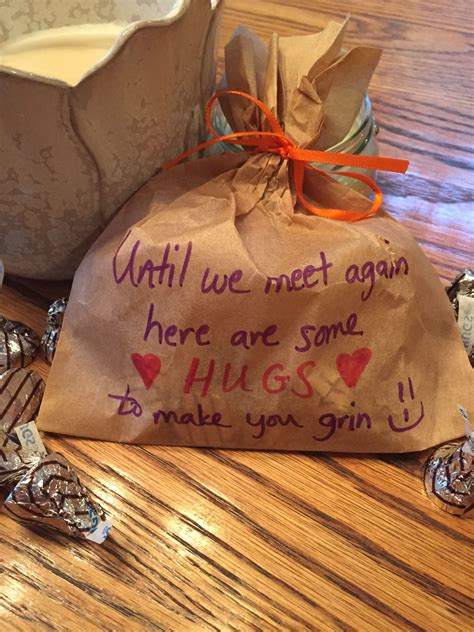 Until we meet again
here are some
♥ HUGS ♥
to make you grin :)